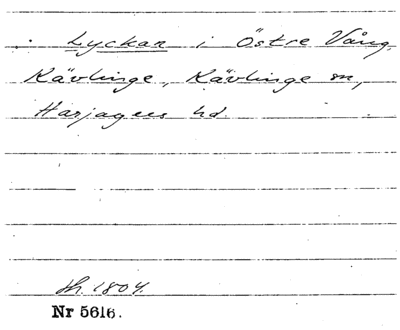 Lyckan i Östre Vång,
Kävlinge, Kävlinge sn,
Harjagers hd.
Sk. 1804.
Nr 5616.